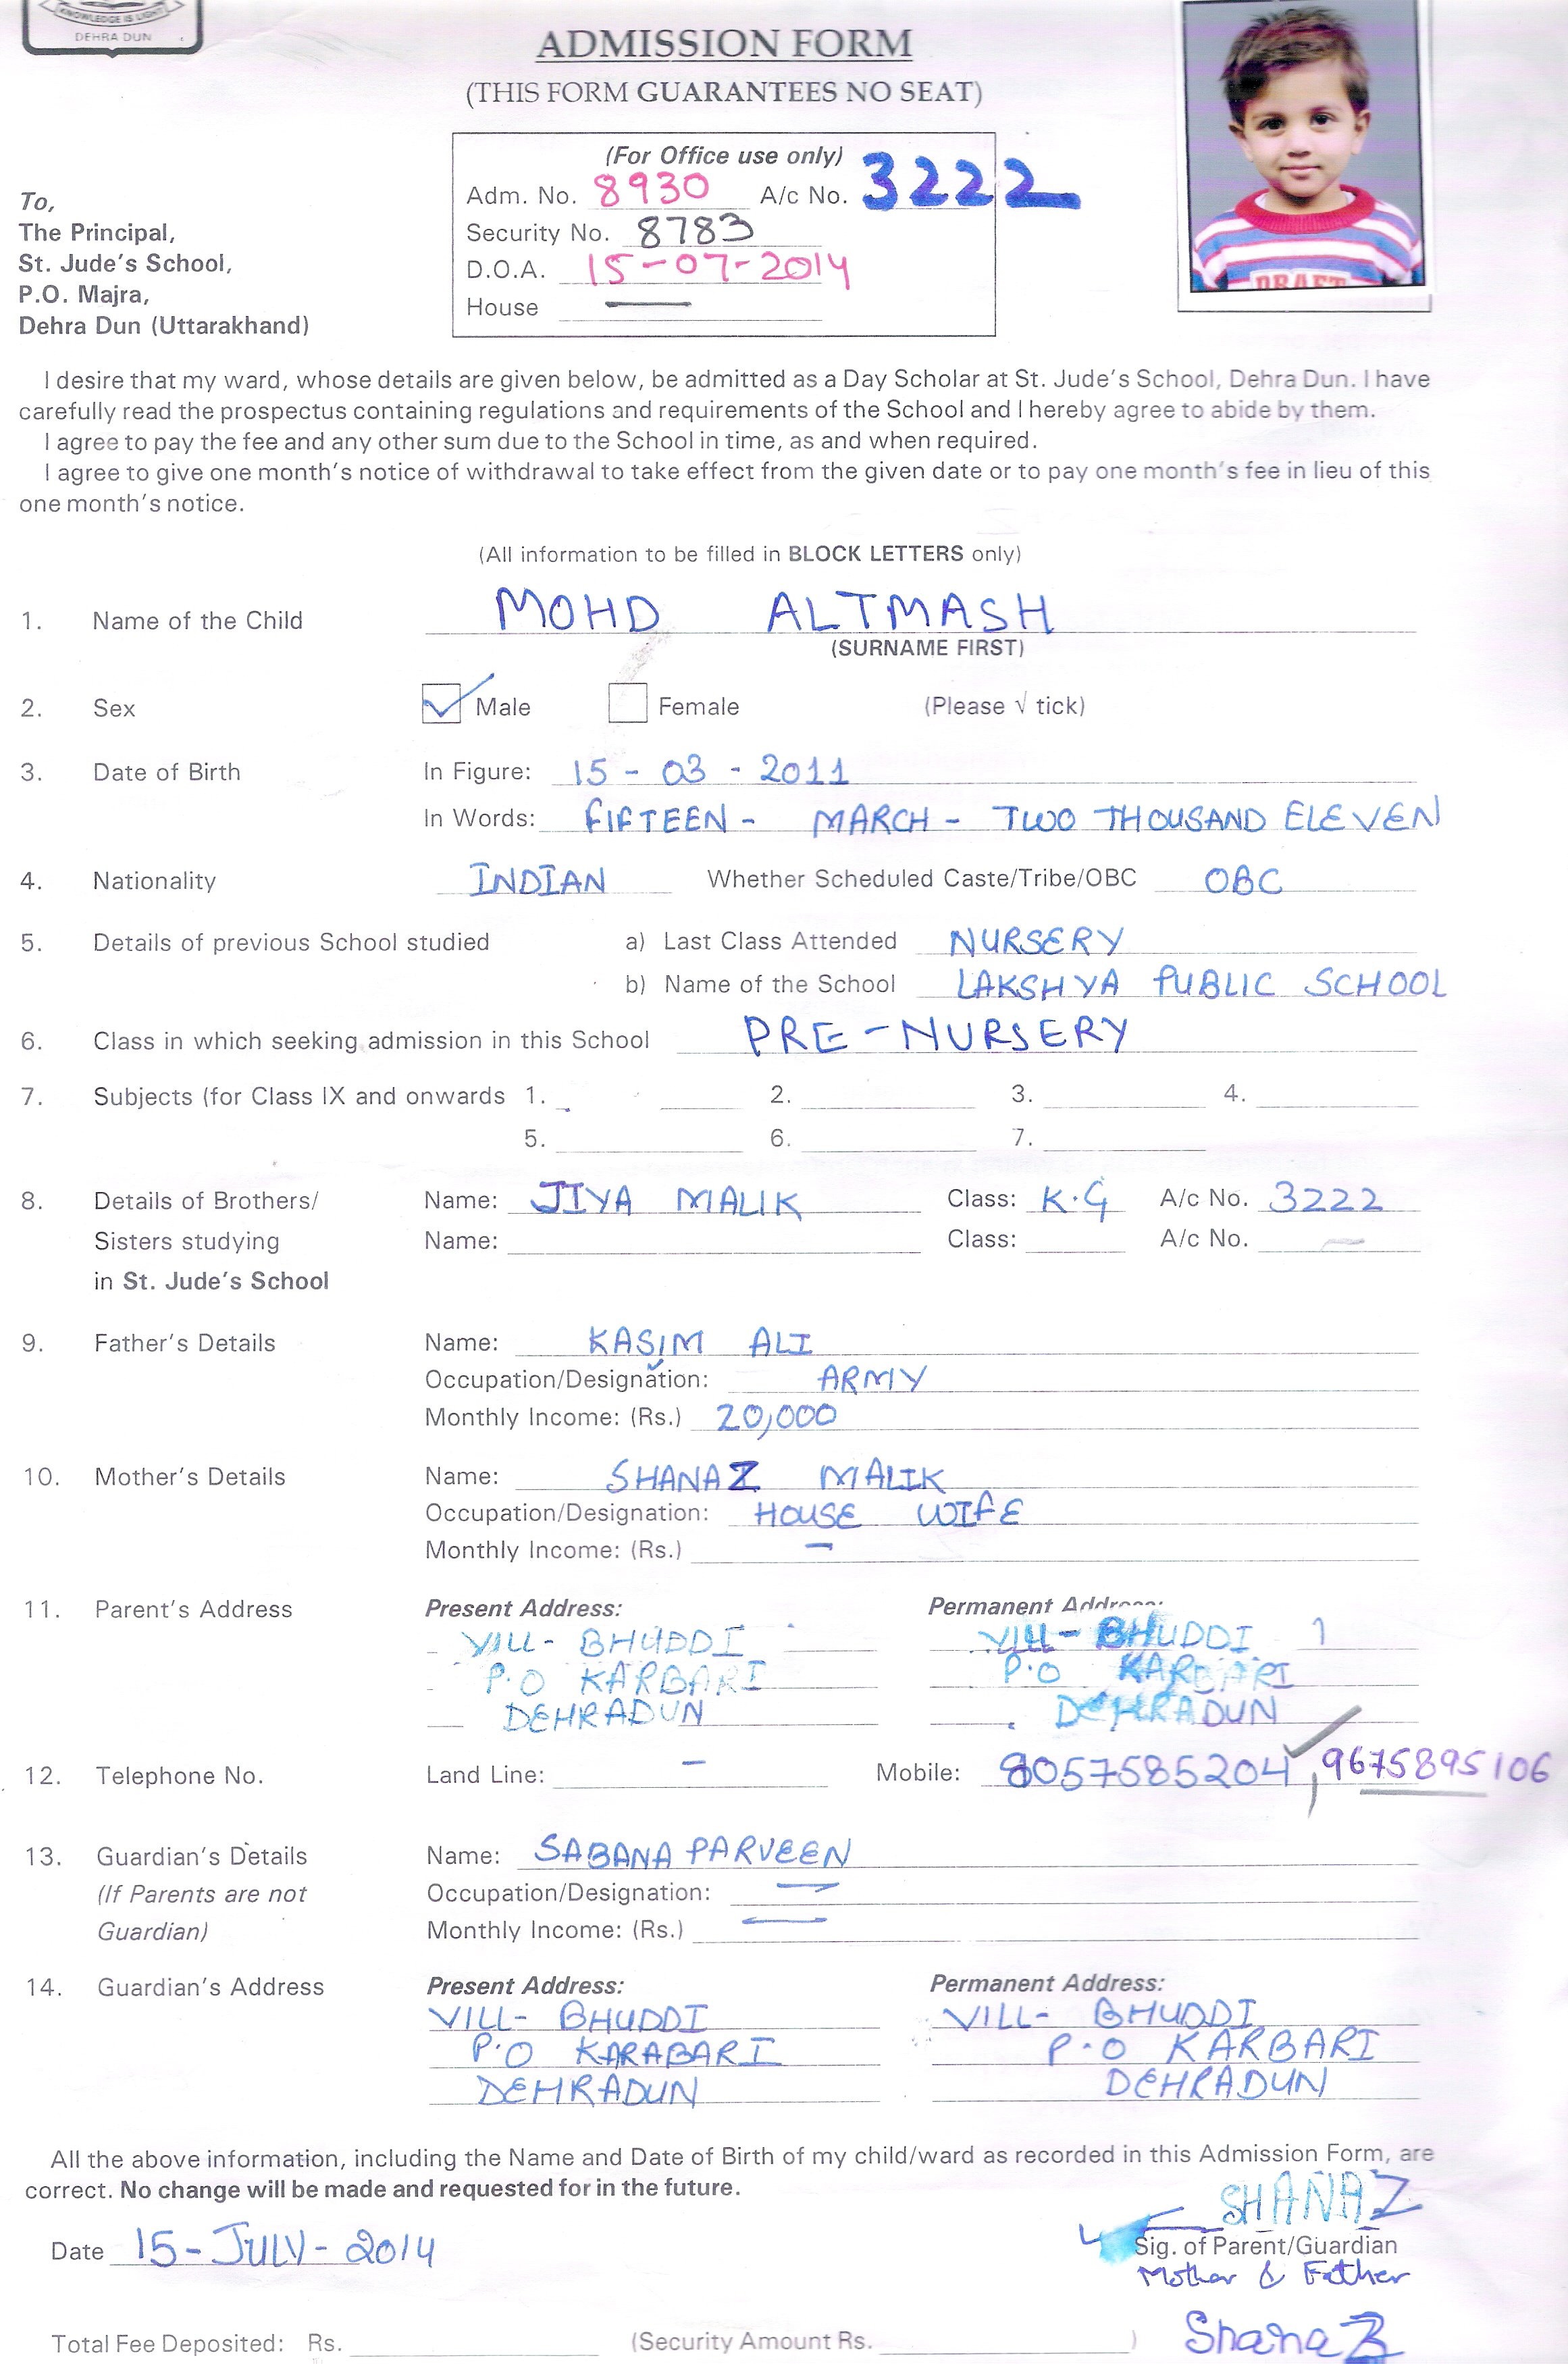 KNOWLEDGE IS LIGHT
DEHRA DUN
ADMISSION FORM
(THIS FORM GUARANTEES NO SEAT)
(For Office use only)
Adm. No. 8930 A/c No. 3222
Security No. 8783
D.O.A. 15-07-2014
House —
To,
The Principal,
St. Jude's School,
P.O. Majra,
Dehra Dun (Uttarakhand)
DRAFT
I desire that my ward, whose details are given below, be admitted as a Day Scholar at St. Jude's School, Dehra Dun. I have
carefully read the prospectus containing regulations and requirements of the School and I hereby agree to abide by them.
I agree to pay the fee and any other sum due to the School in time, as and when required.
I agree to give one month's notice of withdrawal to take effect from the given date or to pay one month's fee in lieu of this
one month's notice.
(All information to be filled in BLOCK LETTERS only)
1. Name of the Child MOHD ALTMASH
(SURNAME FIRST)
2. Sex Male Female (Please √ tick)
3. Date of Birth In Figure: 15 - 03 - 2011
In Words: FIFTEEN - MARCH - TWO THOUSAND ELEVEN
4. Nationality INDIAN Whether Scheduled Caste/Tribe/OBC OBC
5. Details of previous School studied a) Last Class Attended NURSERY
b) Name of the School LAKSHYA PUBLIC SCHOOL
6. Class in which seeking admission in this School PRE-NURSERY
7. Subjects (for Class IX and onwards 1. 2. 3. 4.
5. 6. 7.
8. Details of Brothers/ Name: JIYA MALIK Class: K.G A/c No. 3222
Sisters studying Name: Class: A/c No. —
in St. Jude's School
9. Father's Details Name: KASIM ALI
Occupation/Designation: ARMY
Monthly Income: (Rs.) 20,000
10. Mother's Details Name: SHANAZ MALIK
Occupation/Designation: HOUSE WIFE
Monthly Income: (Rs.) —
11. Parent's Address Present Address: Permanent Address:
VILL- BHUDDI VILL- BHUDDI
P.O KARBARI P.O KARBARI
DEHRADUN DEHRADUN
12. Telephone No. Land Line: — Mobile: 8057585204, 9675895106
13. Guardian's Details Name: SABANA PARVEEN
(If Parents are not Occupation/Designation: —
Guardian) Monthly Income: (Rs.) —
14. Guardian's Address Present Address: Permanent Address:
VILL- BHUDDI VILL- BHUDDI
P.O KARABARI P.O KARBARI
DEHRADUN DEHRADUN
All the above information, including the Name and Date of Birth of my child/ward as recorded in this Admission Form, are
correct. No change will be made and requested for in the future.
SHANAZ
Date 15-JULY-2014 Sig. of Parent/Guardian
Mother & Father
Total Fee Deposited: Rs. (Security Amount Rs. ) Shanaz